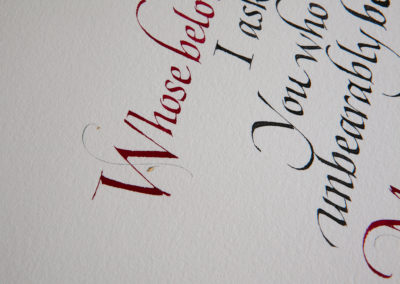 Whose belo
I ask
You who
unbearably be